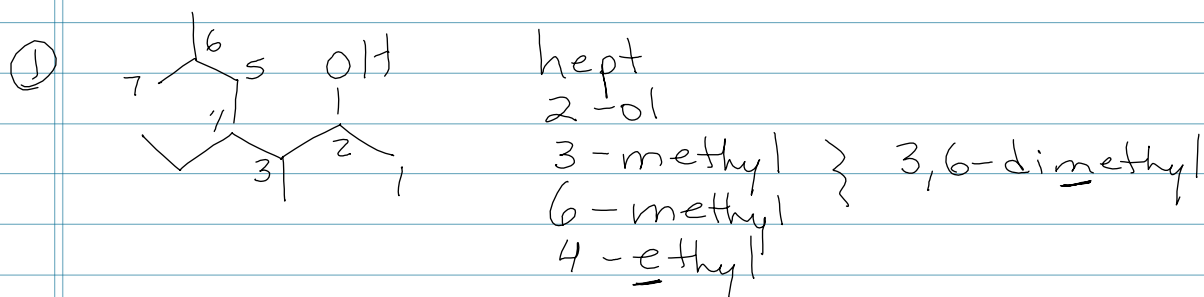 ①
6
7 5 OH
4
3 2 1
hept
2-ol
3-methyl } 3,6-dimethyl
6-methyl
4-ethyl